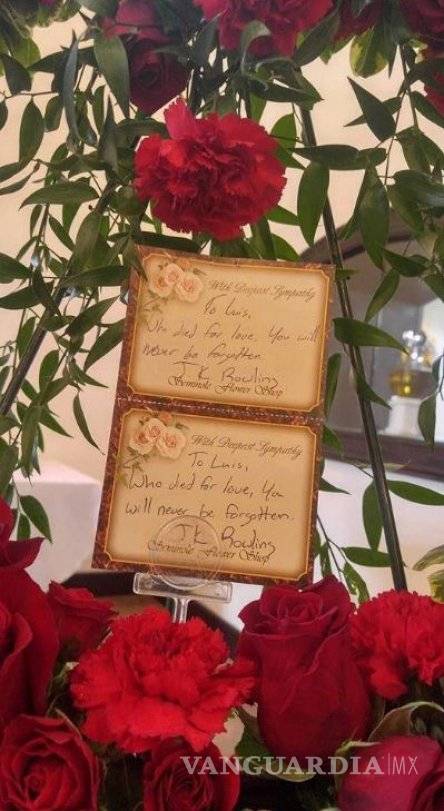 With Deepest Sympathy
To Luis,
Who died for love. You will
never be forgotten.
J K Rowling
Seminole Flower Shop
With Deepest Sympathy
To Luis,
Who died for love, You
will never be forgotten.
J K Rowling
Seminole Flower Shop
VANGUARDIA|MX